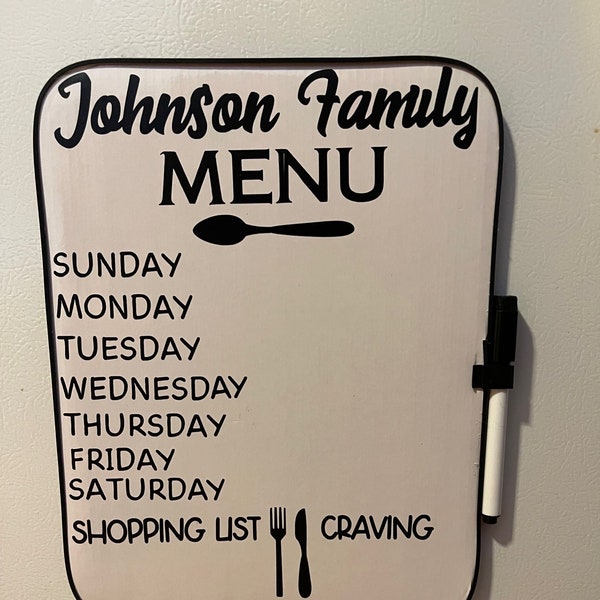 Johnson Family
MENU
SUNDAY
MONDAY
TUESDAY
WEDNESDAY
THURSDAY
FRIDAY
SATURDAY
SHOPPING LIST CRAVING